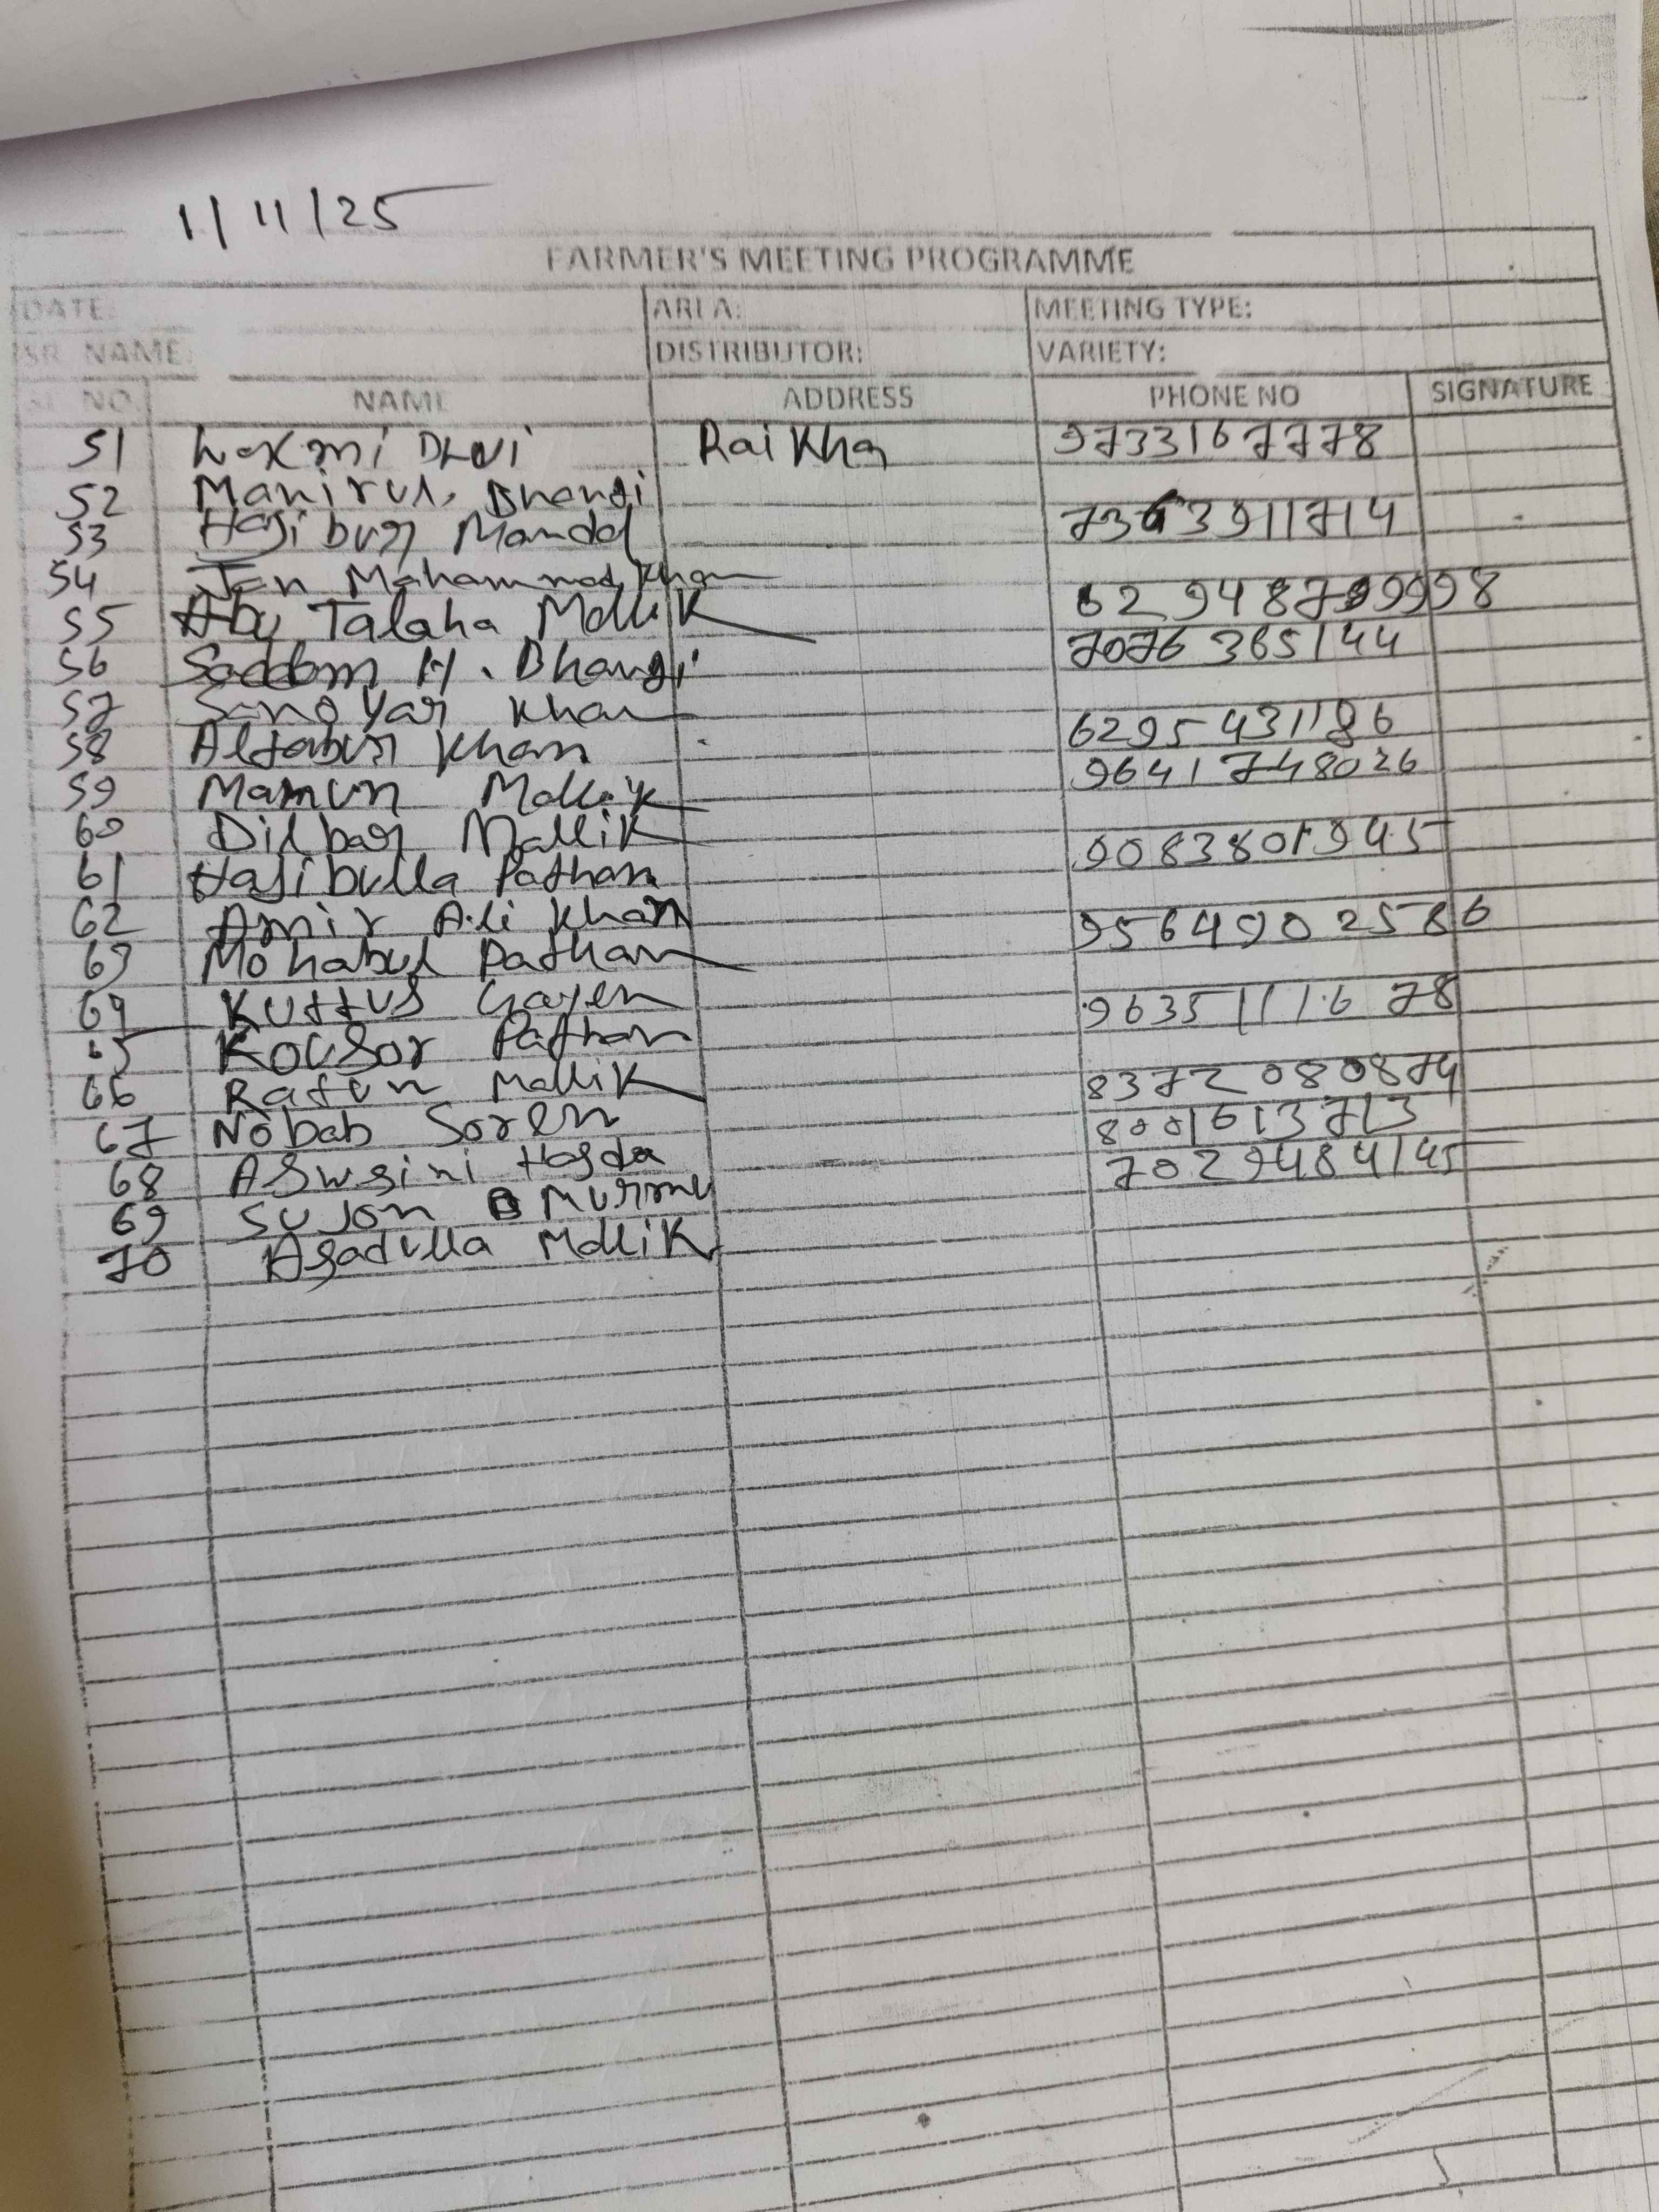 1/11/25
FARMER'S MEETING PROGRAMME
DATE: AREA: MEETING TYPE:
SR. NAME: DISTRIBUTOR: VARIETY:
SL. NO. NAME ADDRESS PHONE NO SIGNATURE
51 Laxmi Devi Rai Kha 9733167778
52 Manirul Bhangi
53 Hasibur Mandal 7363911714
54 Jan Mahammad Khan
55 Abu Talaha Mallik
56 Saddam H. Bhangi 7076365144
57 Sanoyar Khan
58 Altabur Khan 6295431186
59 Mamun Mallik 9641748026
60 Dilbar Mallik
61 Hasibulla Pathan 9083801945
62 Amir Ali Khan
63 Mohabul Pathan 9564902586
64 Kuttus Gayen
65 Kousor Pathan 9635111678
66 Ratun Mallik
67 Nobab Soren 8372080874
68 Aswsini Hasda 8001613713
69 Sujon Murmu 7029484145
70 Asadulla Mallik